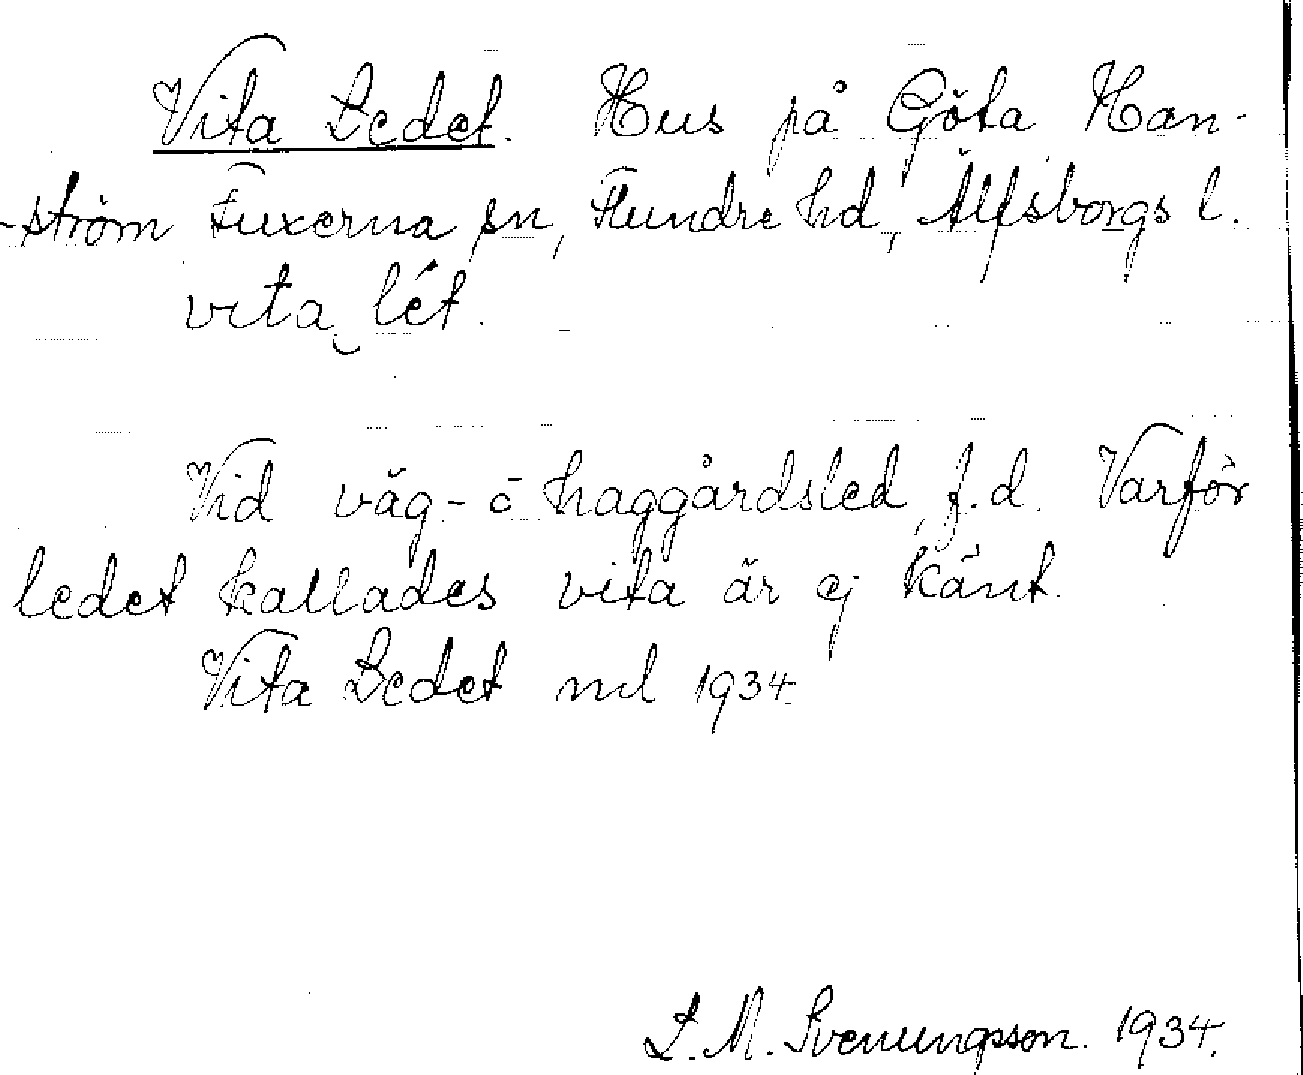 Vita Ledet. Hus på Göta Han-
-ström Fuxerna sn, Flundre hd, Älfsborgs l.
vita lét.
Vid väg- o haggårdsled, f.d. Varför
ledet kallades vita är ej känt.
Vita Ledet ml 1934.
L. M. Svenungsson. 1934.